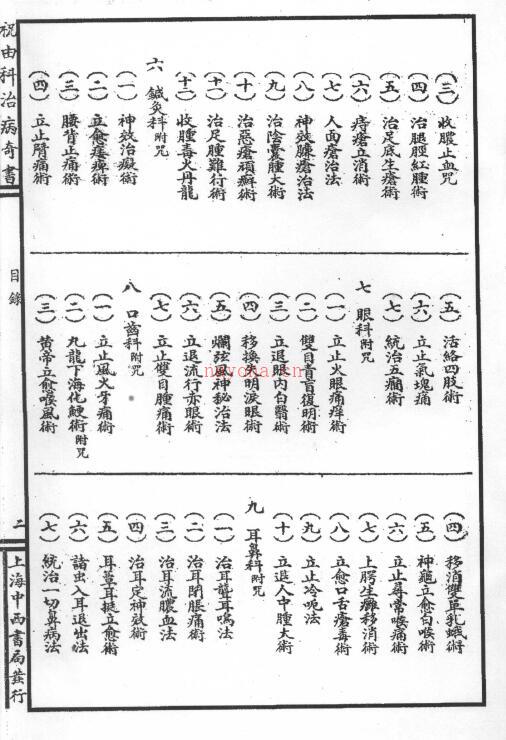 (三)收膿止血咒
(四)治腿脛紅腫術
(五)治足底生瘡術
(六)痔瘡立消術
(七)人面瘡治法
(八)神效臁瘡治法
(九)治陰囊腫大術
(十)治惡瘡頑癬術
(十一)治足腫難行術
(十二)收腫毒火丹龍
六 鍼灸科附咒
(一)神效治癡術
(二)立愈痿痺術
(三)腰背止痛術
(四)立止臂痛術
(五)活絡四肢術
(六)立止氣塊痛
(七)統治五癇術
七 眼科附咒
(一)立止火眼痛痒術
(二)雙目青盲復明術
(三)立退眼內白翳術
(四)移換失明淚眼術
(五)爛弦風神秘治法
(六)立退流行赤眼術
(七)立止雙目腫痛術
八 口齒科附咒
(一)立止風火牙痛術
(二)九龍下海化鯁術附咒
(三)黃帝立愈喉風術
(四)移消雙單乳蛾術
(五)神龜立愈白喉術
(六)立止尋常喉痛術
(七)上腭生癰移消術
(八)立愈口舌瘡毒術
(九)立止冷呃法
(十)立退人中腫大術
九 耳鼻科附咒
(一)治耳聾耳鳴法
(二)治耳閉脹痛術
(三)治耳流膿血法
(四)治耳定神效術
(五)耳蕈耳挺立愈術
(六)諸虫入耳退出法
(七)統治一切鼻病法
祝由科治病奇書
目錄
二
上海中西書局發行
nayona.cn